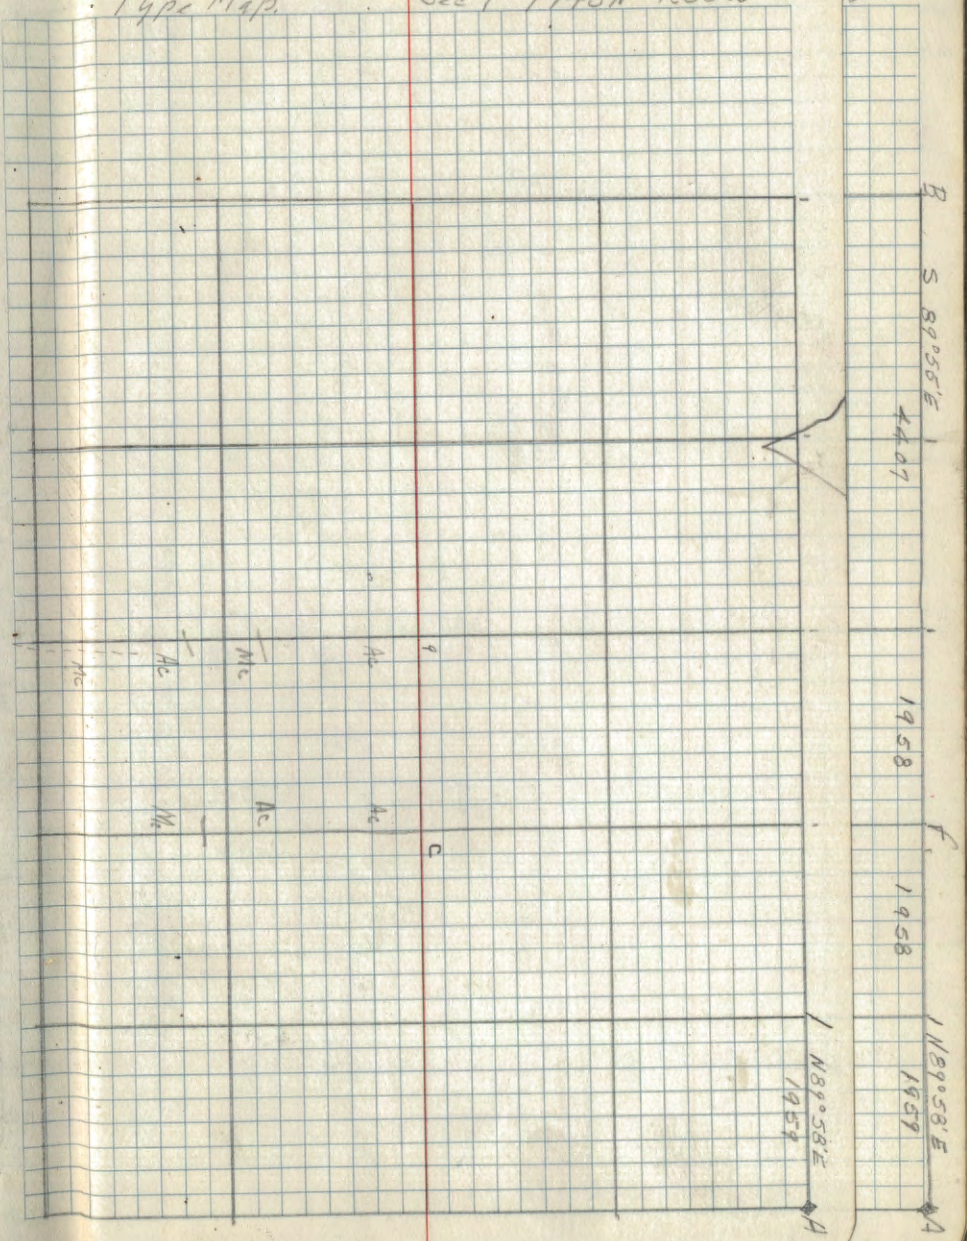 Type Map.
Sec 1
B S 89°55'E 4407 1958 f 1958 N89°58'E 1959 A
N89°58'E
1959
A
Ac
Mc
Ac
Mc
Ac
Ac
Mc
C